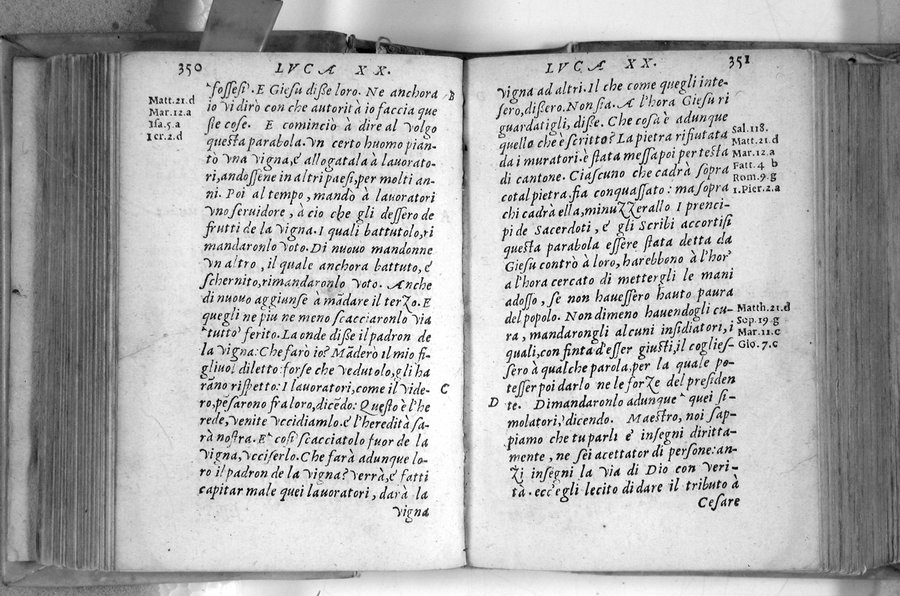 350 LVCÆ XX.
fossesi. E Giesu diße loro. Ne anchora B
io vi dirò con che autorità io faccia que
ste cose. E cominciò a dire al volgo
questa parabola. Vn certo huomo pian-
tò vna vigna, e allogatala à lauorato-
ri, andossene in altri paesi, per molti an-
ni. Poi al tempo, mandò à lauoratori
vno seruidore, à cio che gli dessero de
frutti de la vigna. I quali battutolo, ri
mandaronlo voto. Di nuouo mandonne
vn altro, il quale anchora battuto, e
schernito, rimandaronlo voto. Anche
di nuouo aggiunse à mādare il terzo. E
quegli ne piu ne meno scacciaronlo via
tutto ferito. La onde diße il padron de
la vigna: Che farò io? Māderò il mio fi-
gliuol diletto: forse che vedutolo, gli ha
rāno rispetto: I lauoratori, come il vide- C
ro, pēsarono fra loro, dicēdo: Questo è l'he
rede, venite vccidiamlo. e l'heredità sa-
rà nostra. E così scacciatolo fuor de la
vigna, vcciserlo. Che farà adunque lo-
ro il padron de la vigna? verrà, e fatti
capitar male quei lauoratori, darà la
vigna
Matt.21.d
Mar.12.a
Isa.5.a
Ier.2.d
LVCÆ XX. 351
vigna ad altri. Il che come quegli inte-
sero, dißero. Non sia. A l'hora Giesu ri
guardatigli, diße. Che cosà è adunque
quello che è scritto? La pietra rifiutata
da i muratori. è stata messa poi per testa
di cantone. Ciascuno che cadrà sopra
cotal pietra, fia conquassato: ma sopra
chi cadrà ella, minuzzerallo I prenci-
pi de Sacerdoti, e gli Scribi accortisi
questa parabola essere stata detta da
Giesu contrò à loro, harebbono à l'hor'
a l'hora cercato di mettergli le mani
adosso, se non hauessero hauto paura
del popolo. Non dimeno hauendogli cu-
ra, mandarongli alcuni insidiatori, i
quali, con finta d'esser giusti, il coglies-
sero à qualche parola, per la quale po-
tesser poi darlo ne le forze del presiden
D te. Dimandaronlo adunque quei si-
molatori, dicendo. Maestro, noi sap-
piamo che tu parli e insegni diritta-
mente, ne sei acettator di persone: an-
zi insegni la via di Dio con veri-
tà. ecc'egli lecito di dare il tributo à
Cesare
Sal.118.
Matt.21.d
Mar.12.a
Fatt.4 b
Rom.9.g
1.Pier.2.a
Matth.21.d
Sep.19.g
Mar.11.c
Gio.7.c